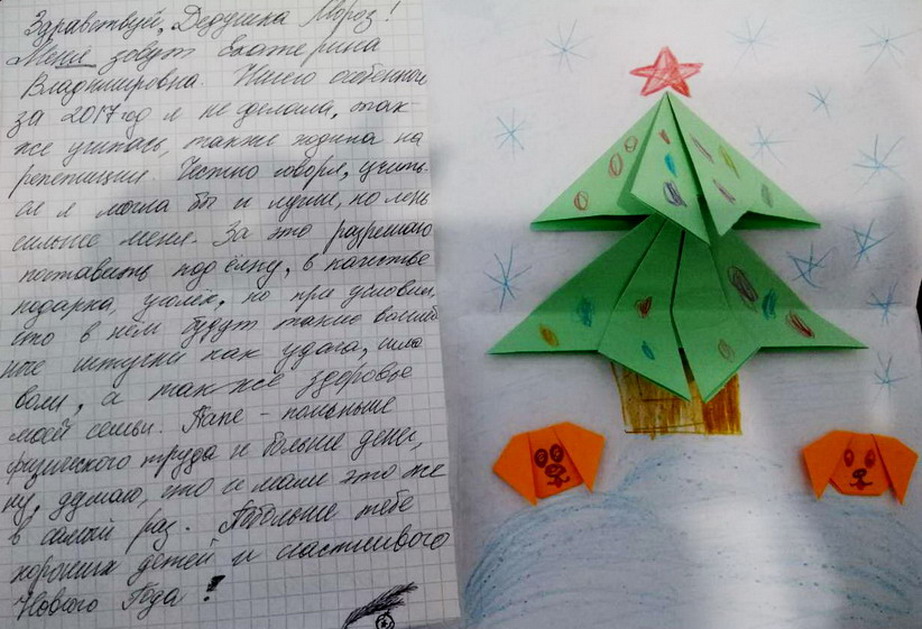 Здравствуй, Дедушка Мороз!
Меня зовут Екатерина
Владимировна. Ничего особенного
за 2017 год я не сделала, так-
же училась, также ходила на
репетиции. Честно говоря, учить-
ся я могла бы и лучше, но лень
сильнее меня. За это разрешаю
поставить под ёлку, в качестве
подарка, уголёк, но при условии,
что в нём будут такие
ные штучки как удача, сила
воли, а также здоровье
моей семьи. Папе - поменьше
физического труда и больше денег,
ну, думаю, что и маме это же
в самый раз. Побольше тебе
хороших детей и счастливого
Нового Года!